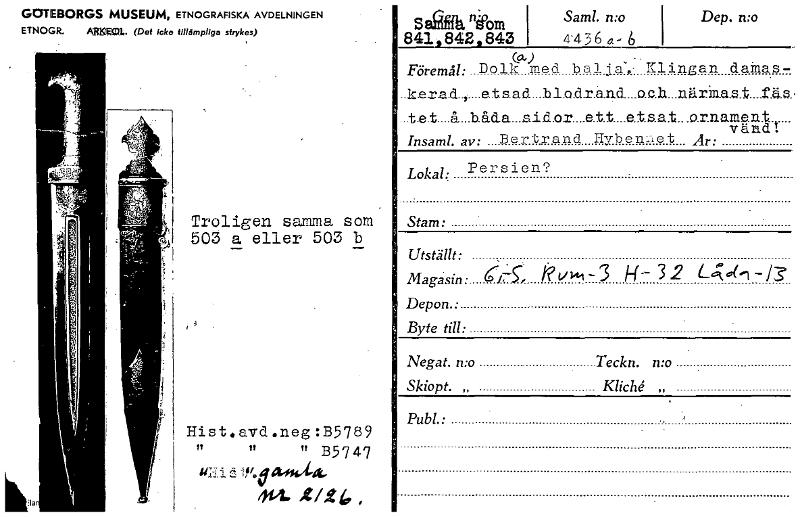 GÖTEBORGS MUSEUM, ETNOGRAFISKA AVDELNINGEN
ETNOGR. ARKEOL. (Det icke tillämpliga strykes)
Troligen samma som
503 a eller 503 b
Hist.avd.neg:B5789
" " " B5747
"Hist". gamla
nr 2126.
Gen. n:o
Samma som
841,842,843
Saml. n:o
4436a-b
Dep. n:o
(a)
Föremål: Dolk med balja. Klingan damas-
kerad, etsad blodrand och närmast fäs
tet å båda sidor ett etsat ornament
vänd!
Insaml. av: Bertrand Hybennet År:
Lokal: Persien?
Stam:
Utställt:
Magasin: G.S. Rum-3 H-32 Låda-13
Depon.:
Byte till:
Negat. n:o Teckn. n:o
Skiopt. „ Kliché „
Publ.: